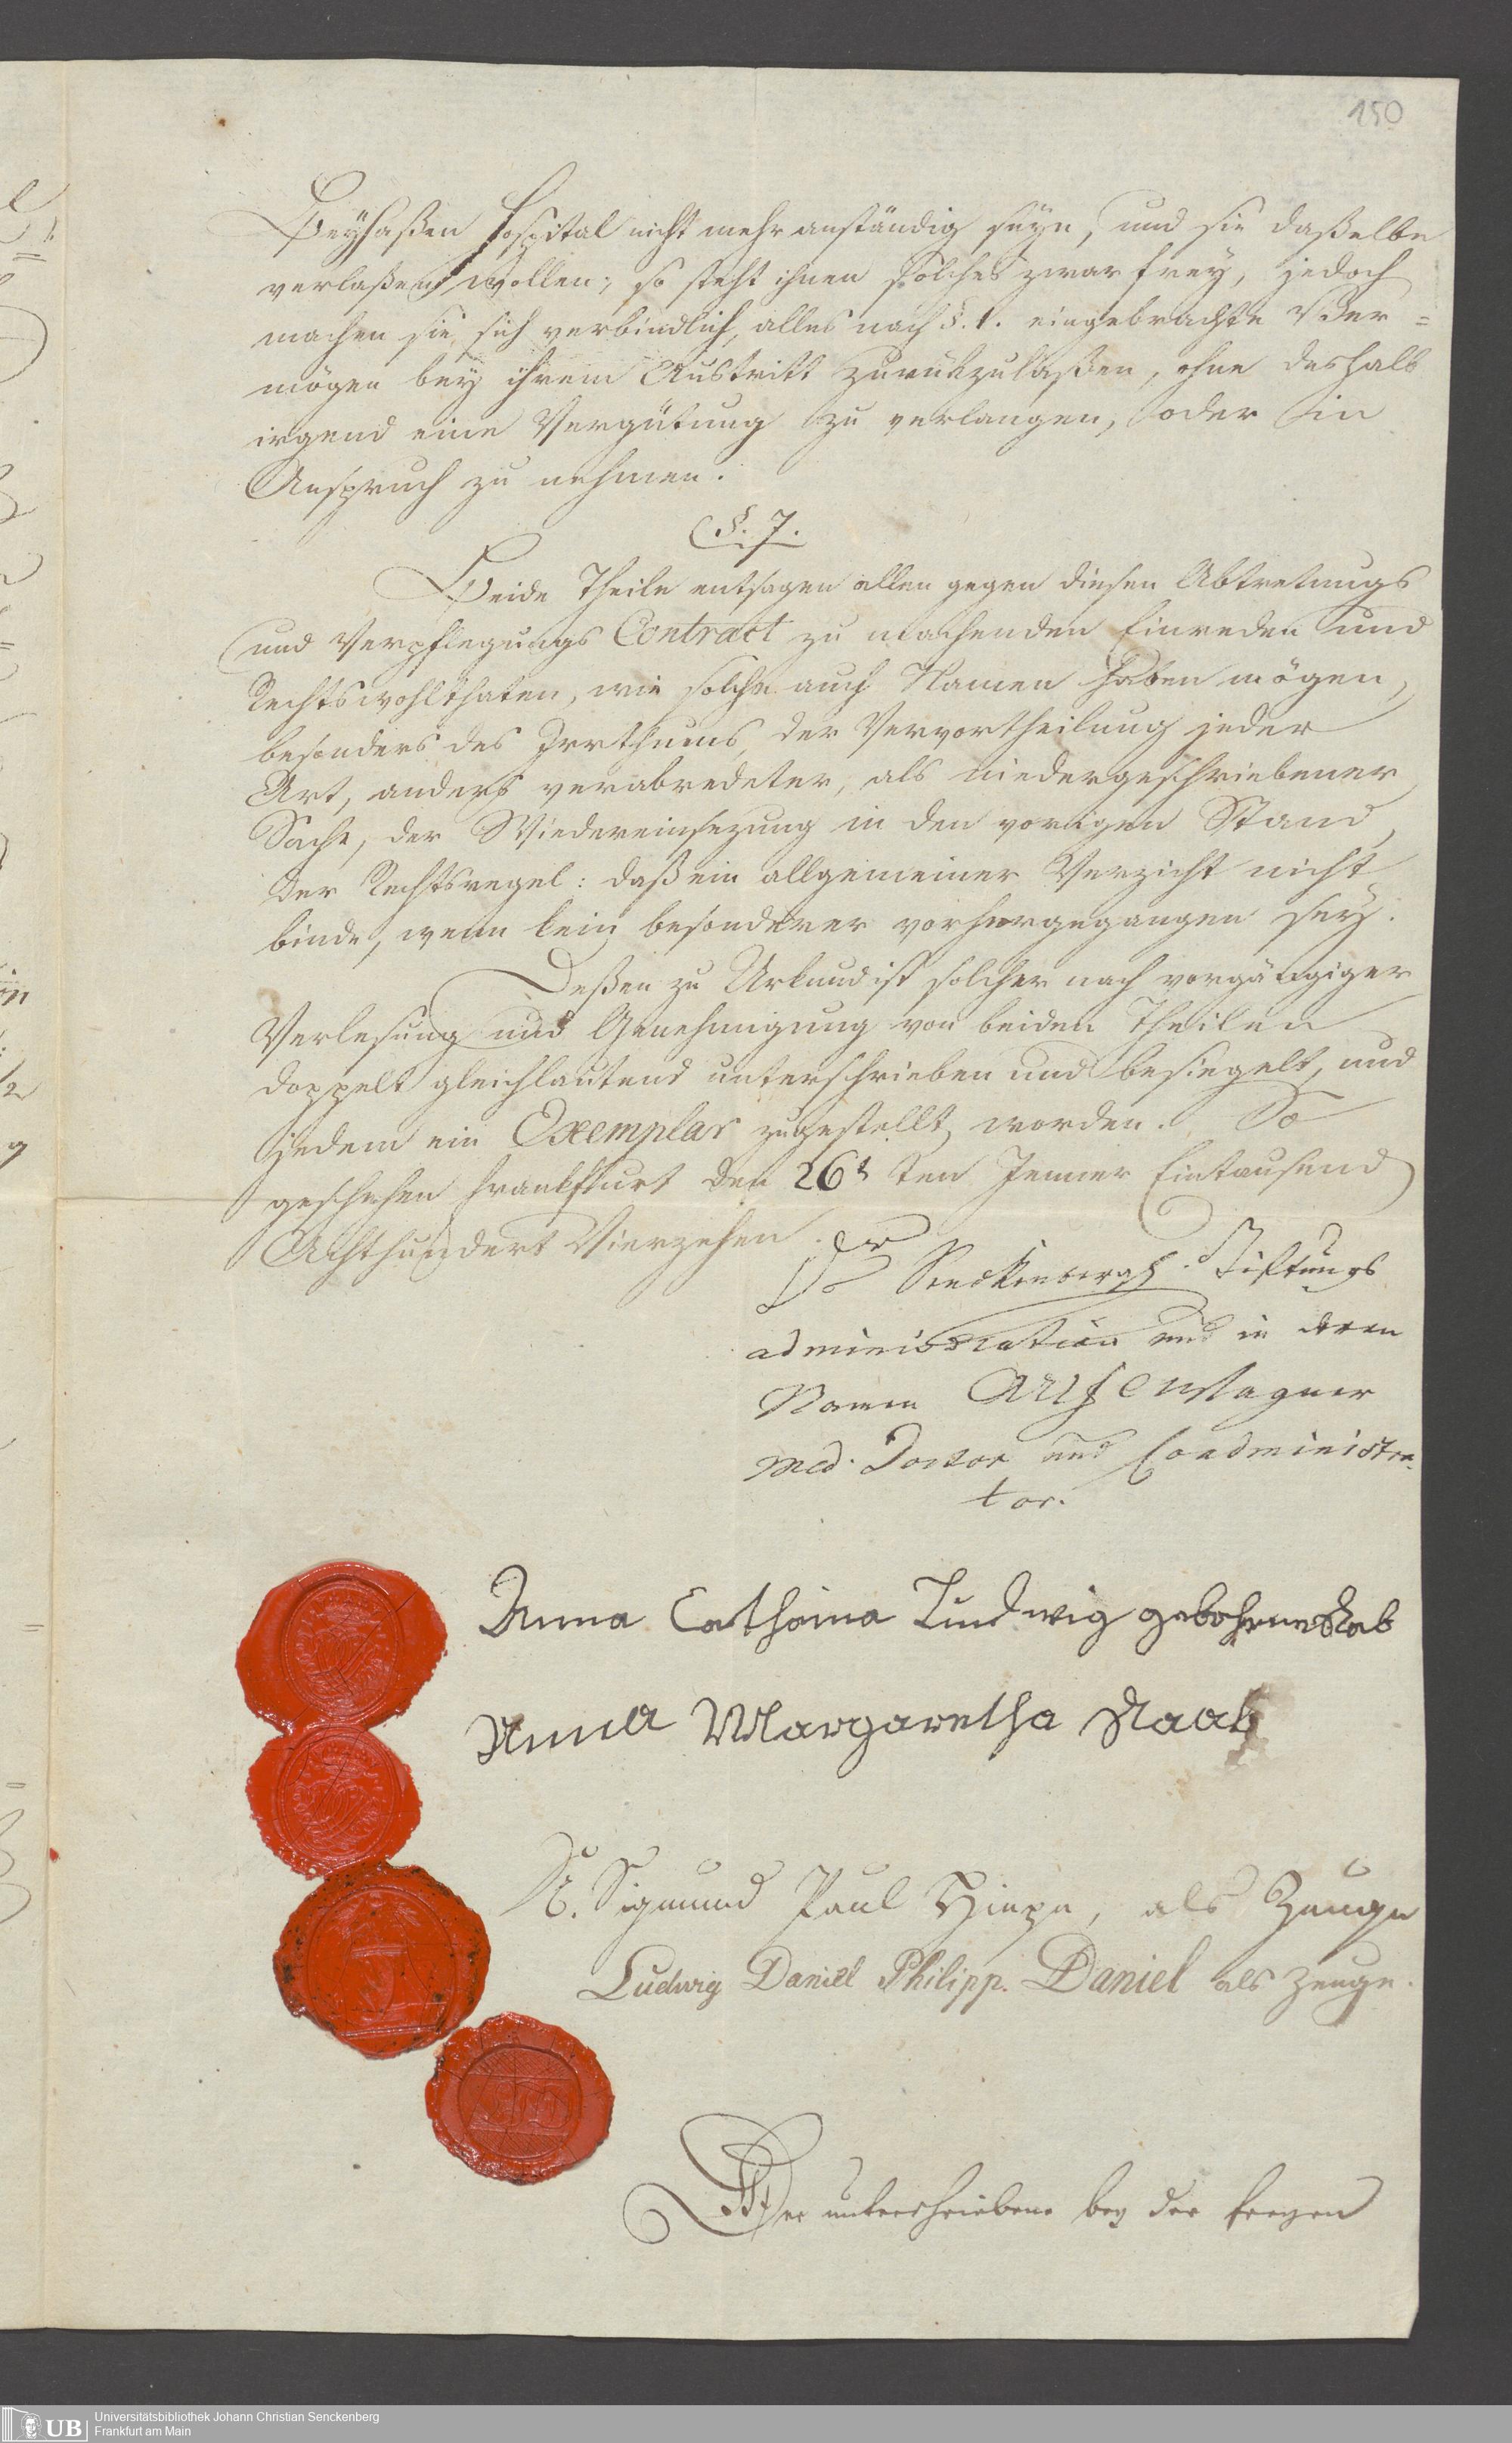 150
Beyhaßen Hospital nicht mehr anständig seyn, und sie daßelbe
verlaßen wollen, so steht ihnen solches zwar frey, jedoch
machen sie sich verbindlich, alles nach §. 1. eingebrachte Ver=
mögen bey ihrem Austritt zurükzulaßen, ohne deshalb
irgend eine Vergütung zu verlangen, oder in
Anspruch zu nehmen.
§. 7.
Beide Theile entsagen allen gegen diesen Abtretungs
und Verpflegungs Contract zu machenden Einreden und
Rechtswohlthaten, wie solche auch Namen haben mögen,
besonders des Irrthums, der Vervortheilung jeder
Art, anders verabredeter, als niedergeschriebener
Sache, der Wiedereinsezung in den vorigen Stand,
der Rechtsregel: daß ein allgemeiner Verzicht nicht
binde, wenn kein besonderer vorhergegangen sey.
Deßen zu Urkund ist solcher nach vorgängiger
Verlesung und Genehmigung von beiden Theilen
doppelt gleichlautend unterschrieben und besiegelt, und
jedem ein Exemplar zugestellt worden. So
geschehen Frankfurt den 26t ten Jenner Eintausend
Achthundert Vierzehen.
Dr Senckenbergs. Stiftungs
administration und in deren
Namen Wagner
Med. Doctor und Coadministra-
tor.
Anna Catharina Ludwig gebohrne Rab
Anna Margaretha Raab
N. Sigmund Paul Hinze, als Zeuge
Ludwig Daniel Philipp. Daniel als Zeuge.
Der unterschriebene bey der freyen
UB
Universitätsbibliothek Johann Christian Senckenberg
Frankfurt am Main